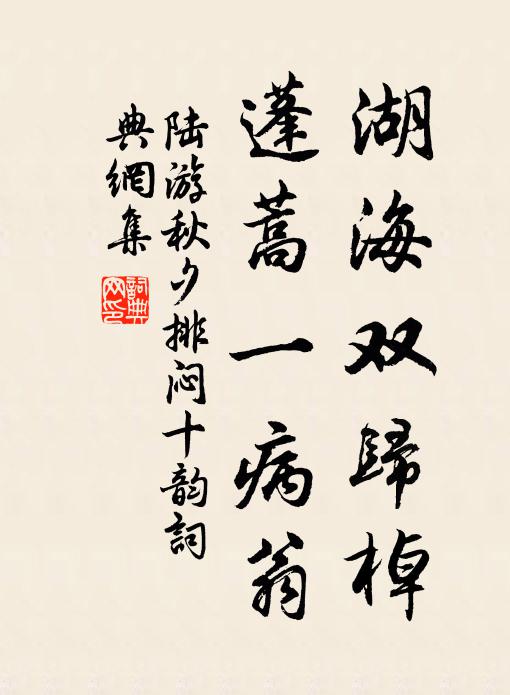 湖海双歸棹
蓬蒿一病翁
陆游秋夕排闷十韵詞
典網集
詞典
网印